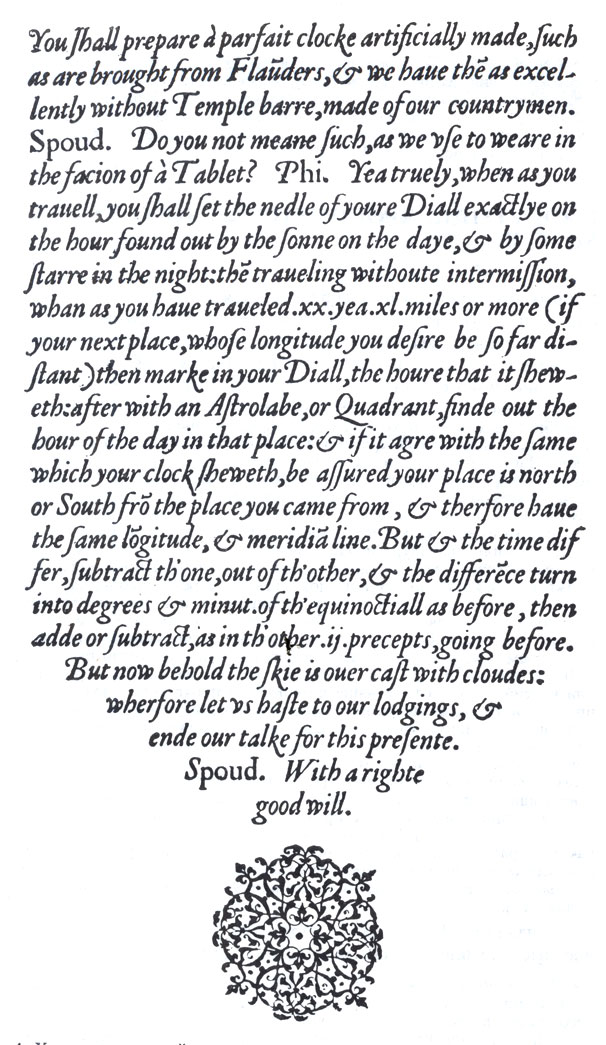 You ſhall prepare à parfait clocke artificially made, ſuch
as are brought from Flaūders, & we haue thē as excel-
lently without Temple barre, made of our countrymen.
Spoud. Do you not meane ſuch, as we vſe to weare in
the facion of à Tablet? Phi. Yea truely, when as you
trauell, you ſhall ſet the nedle of youre Diall exactlye on
the hour found out by the ſonne on the daye, & by ſome
ſtarre in the night: thē traueling withoute intermiſſion,
whan as you haue traueled .xx. yea .xl. miles or more (if
your next place, whoſe longitude you deſire be ſo far di-
ſtant) then marke in your Diall, the houre that it ſhew-
eth: after with an Aſtrolabe, or Quadrant, finde out the
hour of the day in that place: & if it agre with the ſame
which your clock ſheweth, be aſſured your place is north
or South frō the place you came from, & therfore haue
the ſame lōgitude, & meridiā line. But & the time dif
fer, ſubtract th'one, out of th'other, & the differēce turn
into degrees & minut. of th'equinoctiall as before, then
adde or ſubtract, as in th'other .ij. precepts, going before.
But now behold the ſkie is ouer caſt with cloudes:
wherfore let vs haſte to our lodgings, &
ende our talke for this preſente.
Spoud. With a righte
good will.